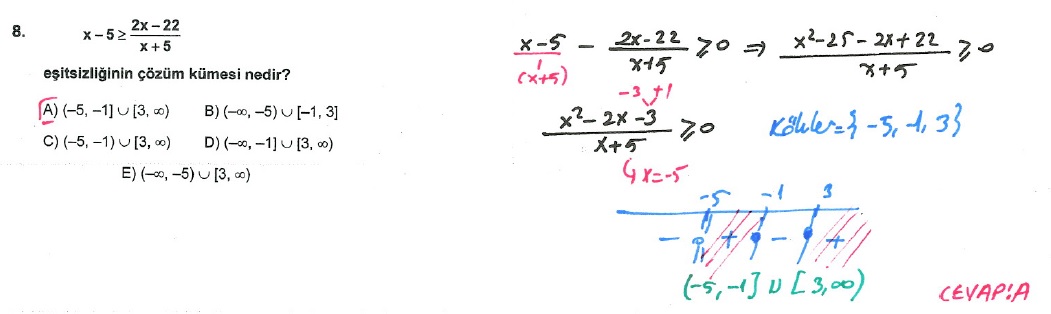 8. x – 5 ≥ (2x – 22)/(x + 5)
eşitsizliğinin çözüm kümesi nedir?
A) (–5, –1] ∪ [3, ∞) B) (–∞, –5) ∪ [–1, 3]
C) (–5, –1) ∪ [3, ∞) D) (–∞, –1] ∪ [3, ∞)
E) (–∞, –5) ∪ [3, ∞)
(x-5)/1 - (2x-22)/(x+5) ≥ 0 ⇒ (x²-25-2x+22)/(x+5) ≥ 0
(x+5)
-3 +1
(x²-2x-3)/(x+5) ≥ 0 Kökler={-5,-1,3}
↳ x=-5
-5 -1 3
- + - +
(-5,-1] ∪ [3,∞)
CEVAP:A